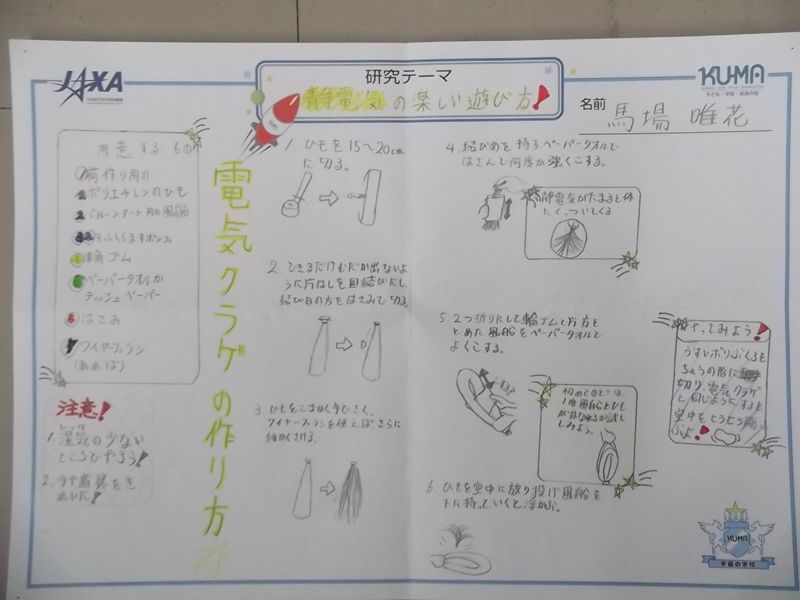 JAXA
研究テーマ
静電気の楽しい遊び方!
KUMA
名前 馬場 唯花
用意するもの
荷作り用の
ポリエチレンのひも
バルーンアート用の風船
ふくらますポンプ
輪ゴム
ペーパータオルか
ティッシュペーパー
はさみ
ワイヤーブラシ
(あれば)
注意!
1. 湿気の少ない
ところでやろう!
2. 手や道具をき
れいに!
電気クラゲの作り方
1. ひもを15〜20cm
に切る。
2. できるだけむだが出ないよ
うに片はしを固結びにし、
結び目の方をはさみで切る。
3. ひもをこまかく手でさく。
ワイヤーブラシを使えば、さらに
細かくさける。
4. 結びめを持ちペーパータオルで
はさんで何度か強くこする。
静電気がたまると体
に、くっついてくる
5. 2つ折りにして輪ゴムで片方を
とめた風船をペーパータオルで
よくこする。
こする!
6. ひもを空中に放り投げ風船を
下に持っていくと浮かぶ。
やってみよう!
うすいポリぶくろを
ちょうの形に
切り、電気クラゲ
と同じようにすると
空中をヒラヒラ飛
ぶよ!
KUMA
宇宙の学校